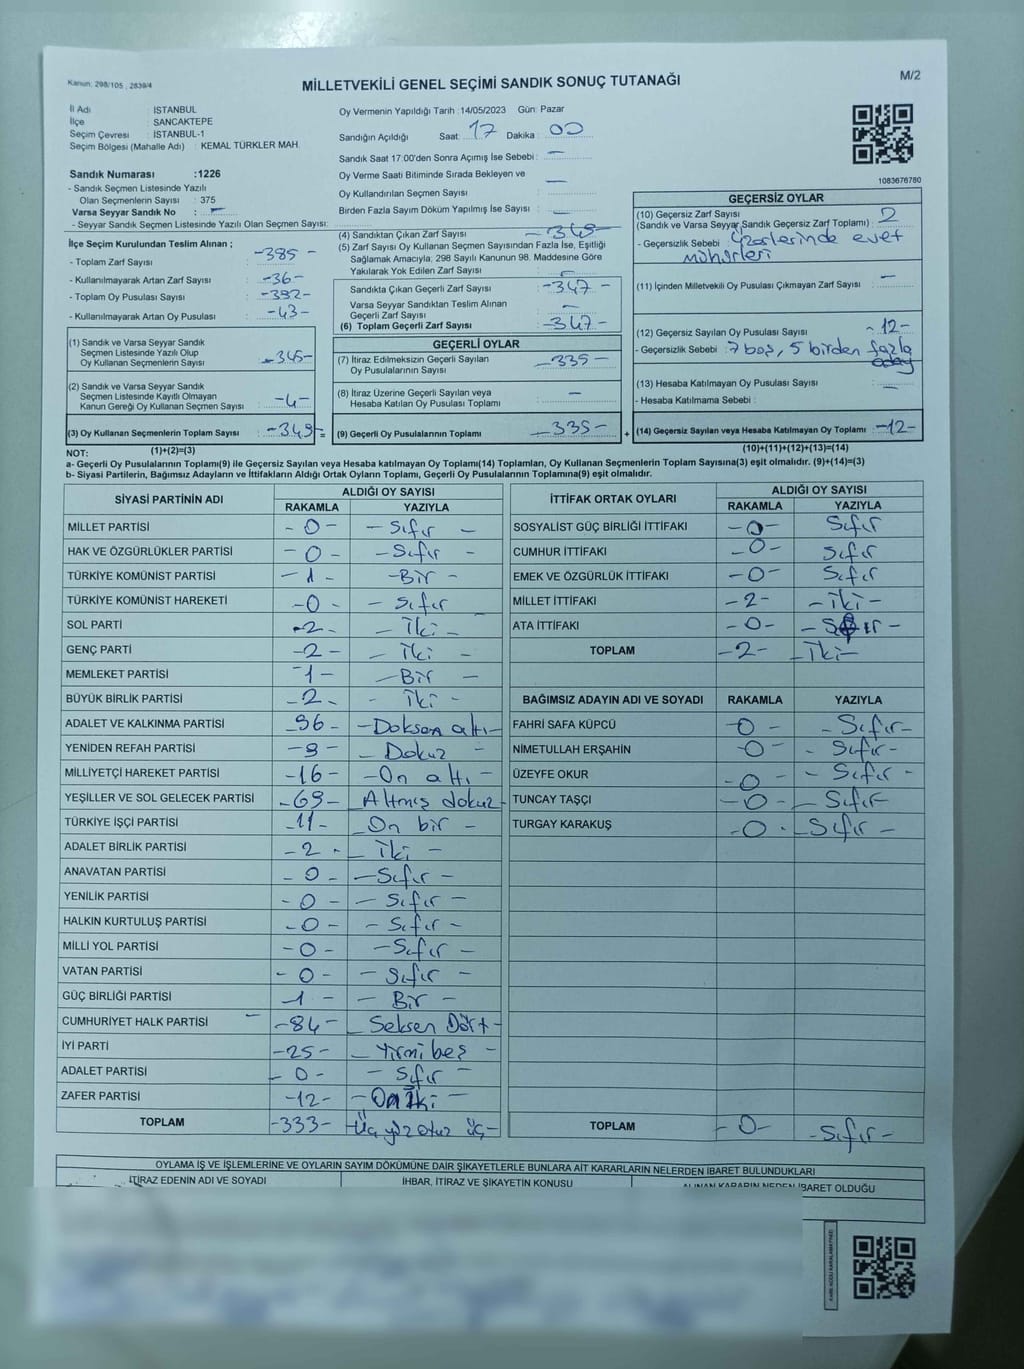 Kanun: 298/105 , 2839/4
MİLLETVEKİLİ GENEL SEÇİMİ SANDIK SONUÇ TUTANAĞI
M/2
İl Adı : İSTANBUL
İlçe : SANCAKTEPE
Seçim Çevresi : İSTANBUL-1
Seçim Bölgesi (Mahalle Adı) : KEMAL TÜRKLER MAH.
Sandık Numarası :1226
- Sandık Seçmen Listesinde Yazılı
Olan Seçmenlerin Sayısı : 375
Varsa Seyyar Sandık No : –
- Seyyar Sandık Listesinde Yazılı Olan Seçmen Sayısı:
İlçe Seçim Kurulundan Teslim Alınan ;
- Toplam Zarf Sayısı : -385-
- Kullanılmayarak Artan Zarf Sayısı : -36-
- Toplam Oy Pusulası Sayısı : -392-
- Kullanılmayarak Artan Oy Pusulası : -43-
(1) Sandık ve Varsa Seyyar Sandık
Seçmen Listesinde Yazılı Olup
Oy Kullanan Seçmenlerin Sayısı : -345-
(2) Sandık ve Varsa Seyyar Sandık
Seçmen Listesinde Kayıtlı Olmayan
Kanun Gereği Oy Kullanan Seçmen Sayısı : -4-
(3) Oy Kullanan Seçmenlerin Toplam Sayısı : -349- =
Oy Vermenin Yapıldığı Tarih :14/05/2023 Gün: Pazar
Sandığın Açıldığı Saat: 17 Dakika : 00
Sandık Saat 17:00'den Sonra Açımış İse Sebebi : –
Oy Verme Saati Bitiminde Sırada Bekleyen ve
Oy Kullandırılan Seçmen Sayısı : –
Birden Fazla Sayım Döküm Yapılmış İse Sayısı : –
(4) Sandıktan Çıkan Zarf Sayısı : -349-
(5) Zarf Sayısı Oy Kullanan Seçmen Sayısından Fazla İse, Eşitliği
Sağlamak Amacıyla, 298 Sayılı Kanunun 98. Maddesine Göre
Yakılarak Yok Edilen Zarf Sayısı : –
Sandıkta Çıkan Geçerli Zarf Sayısı : -347-
Varsa Seyyar Sandıktan Teslim Alınan
Geçerli Zarf Sayısı : –
(6) Toplam Geçerli Zarf Sayısı : -347-
GEÇERLİ OYLAR
(7) İtiraz Edilmeksizin Geçerli Sayılan
Oy Pusulalarının Sayısı : -335-
(8) İtiraz Üzerine Geçerli Sayılan veya
Hesaba Katılan Oy Pusulası Toplamı : –
(9) Geçerli Oy Pusulalarının Toplamı : -335- +
1083676780
GEÇERSİZ OYLAR
(10) Geçersiz Zarf Sayısı : 2
(Sandık ve Varsa Seyyar Sandık Geçersiz Zarf Toplamı)
- Geçersizlik Sebebi : üzerlerinde evet
mühürleri
(11) İçinden Milletvekili Oy Pusulası Çıkmayan Zarf Sayısı : –
(12) Geçersiz Sayılan Oy Pusulası Sayısı : -12-
- Geçersizlik Sebebi : 7 boş, 5 birden fazla
aday
(13) Hesaba Katılmayan Oy Pusulası Sayısı : –
- Hesaba Katılmama Sebebi :
(14) Geçersiz Sayılan veya Hesaba Katılmayan Oy Toplamı : -12-
NOT: (1)+(2)=(3) (10)+(11)+(12)+(13)=(14)
a- Geçerli Oy Pusulalarının Toplamı(9) ile Geçersiz Sayılan veya Hesaba katılmayan Oy Toplamı(14) Toplamları, Oy Kullanan Seçmenlerin Toplam Sayısına(3) eşit olmalıdır. (9)+(14)=(3)
b- Siyasi Partilerin, Bağımsız Adayların ve İttifakların Aldığı Ortak Oyların Toplamı, Geçerli Oy Pusulalarının Toplamına(9) eşit olmalıdır.
SİYASİ PARTİNİN ADI ALDIĞI OY SAYISI
RAKAMLA YAZIYLA
MİLLET PARTİSİ - 0 - - Sıfır -
HAK VE ÖZGÜRLÜKLER PARTİSİ - 0 - - Sıfır -
TÜRKİYE KOMÜNİST PARTİSİ - 1 - -Bir -
TÜRKİYE KOMÜNİST HAREKETİ -0 - - Sıfır
SOL PARTİ -2- - İki -
GENÇ PARTİ -2- - İki -
MEMLEKET PARTİSİ -1- -Bir -
BÜYÜK BİRLİK PARTİSİ -2- - İki -
ADALET VE KALKINMA PARTİSİ -96- -Doksan altı-
YENİDEN REFAH PARTİSİ -9- - Dokuz -
MİLLİYETÇİ HAREKET PARTİSİ -16- -On altı -
YEŞİLLER VE SOL GELECEK PARTİSİ -69- - Altmış dokuz-
TÜRKİYE İŞÇİ PARTİSİ -11- - On bir -
ADALET BİRLİK PARTİSİ -2- - İki -
ANAVATAN PARTİSİ - 0 - -Sıfır -
YENİLİK PARTİSİ - 0 - - Sıfır -
HALKIN KURTULUŞ PARTİSİ -0 - - Sıfır -
MİLLİ YOL PARTİSİ -0- -Sıfır -
VATAN PARTİSİ - 0 - - Sıfır -
GÜÇ BİRLİĞİ PARTİSİ 1 - - Bir -
CUMHURİYET HALK PARTİSİ -84- - Seksen Dört -
İYİ PARTİ -25- - Yirmi beş -
ADALET PARTİSİ - 0- - Sıfır -
ZAFER PARTİSİ -12- - On iki -
TOPLAM -333- -Üç yüz otuz üç-
İTTİFAK ORTAK OYLARI ALDIĞI OY SAYISI
RAKAMLA YAZIYLA
SOSYALİST GÜÇ BİRLİĞİ İTTİFAKI -0- Sıfır
CUMHUR İTTİFAKI -0- Sıfır
EMEK VE ÖZGÜRLÜK İTTİFAKI -0- Sıfır
MİLLET İTTİFAKI -2- -İki-
ATA İTTİFAKI -0- -Sıfır -
TOPLAM -2- -İki-
BAĞIMSIZ ADAYIN ADI VE SOYADI RAKAMLA YAZIYLA
FAHRİ SAFA KÜPCÜ -0- - Sıfır-
NİMETULLAH ERŞAHİN -0- - Sıfır-
ÜZEYFE OKUR -0- - Sıfır -
TUNCAY TAŞÇI -0- - Sıfır
TURGAY KARAKUŞ -0- -Sıfır -
TOPLAM - 0- -Sıfır-
OYLAMA İŞ VE İŞLEMLERİNE VE OYLARIN SAYIM DÖKÜMÜNE DAİR ŞİKAYETLERLE BUNLARA AİT KARARLARIN NELERDEN İBARET BULUNDUKLARI
İTİRAZ EDENİN ADI VE SOYADI İHBAR, İTİRAZ VE ŞİKAYETİN KONUSU ALINAN KARARIN NEDEN İBARET OLDUĞU